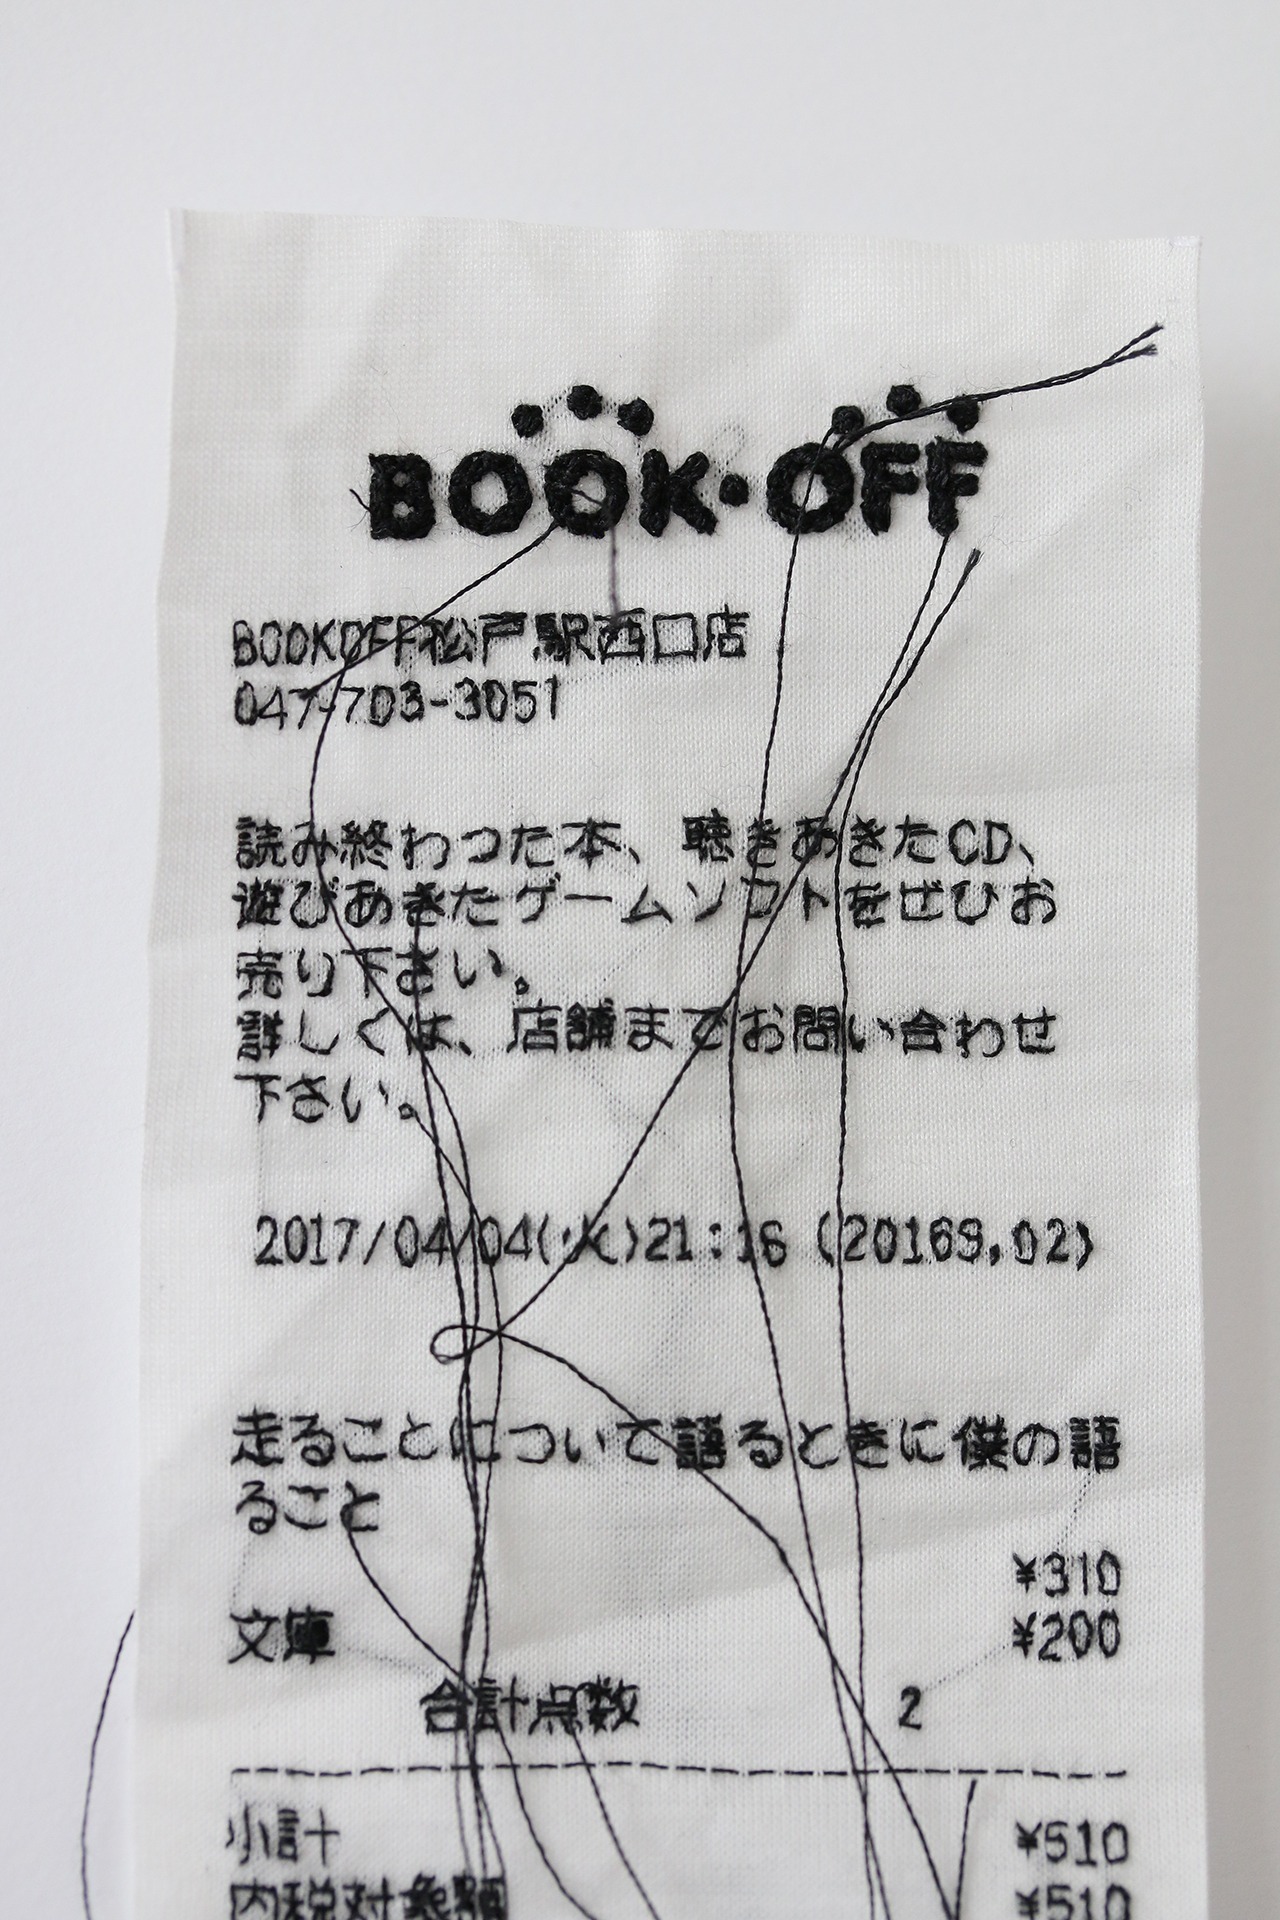 BOOK・OFF
BOOKOFF松戸駅西口店
047-703-3051
読み終わった本、聴きあきたCD、
遊びあきたゲームソフトをぜひお
売り下さい。
詳しくは、店舗までお問い合わせ
下さい。
2017/04/04(火)21:16 (20169,02)
走ることについて語るときに僕の語
ること
¥310
文庫 ¥200
合計点数 2
小計 ¥510
内税対象額 ¥510